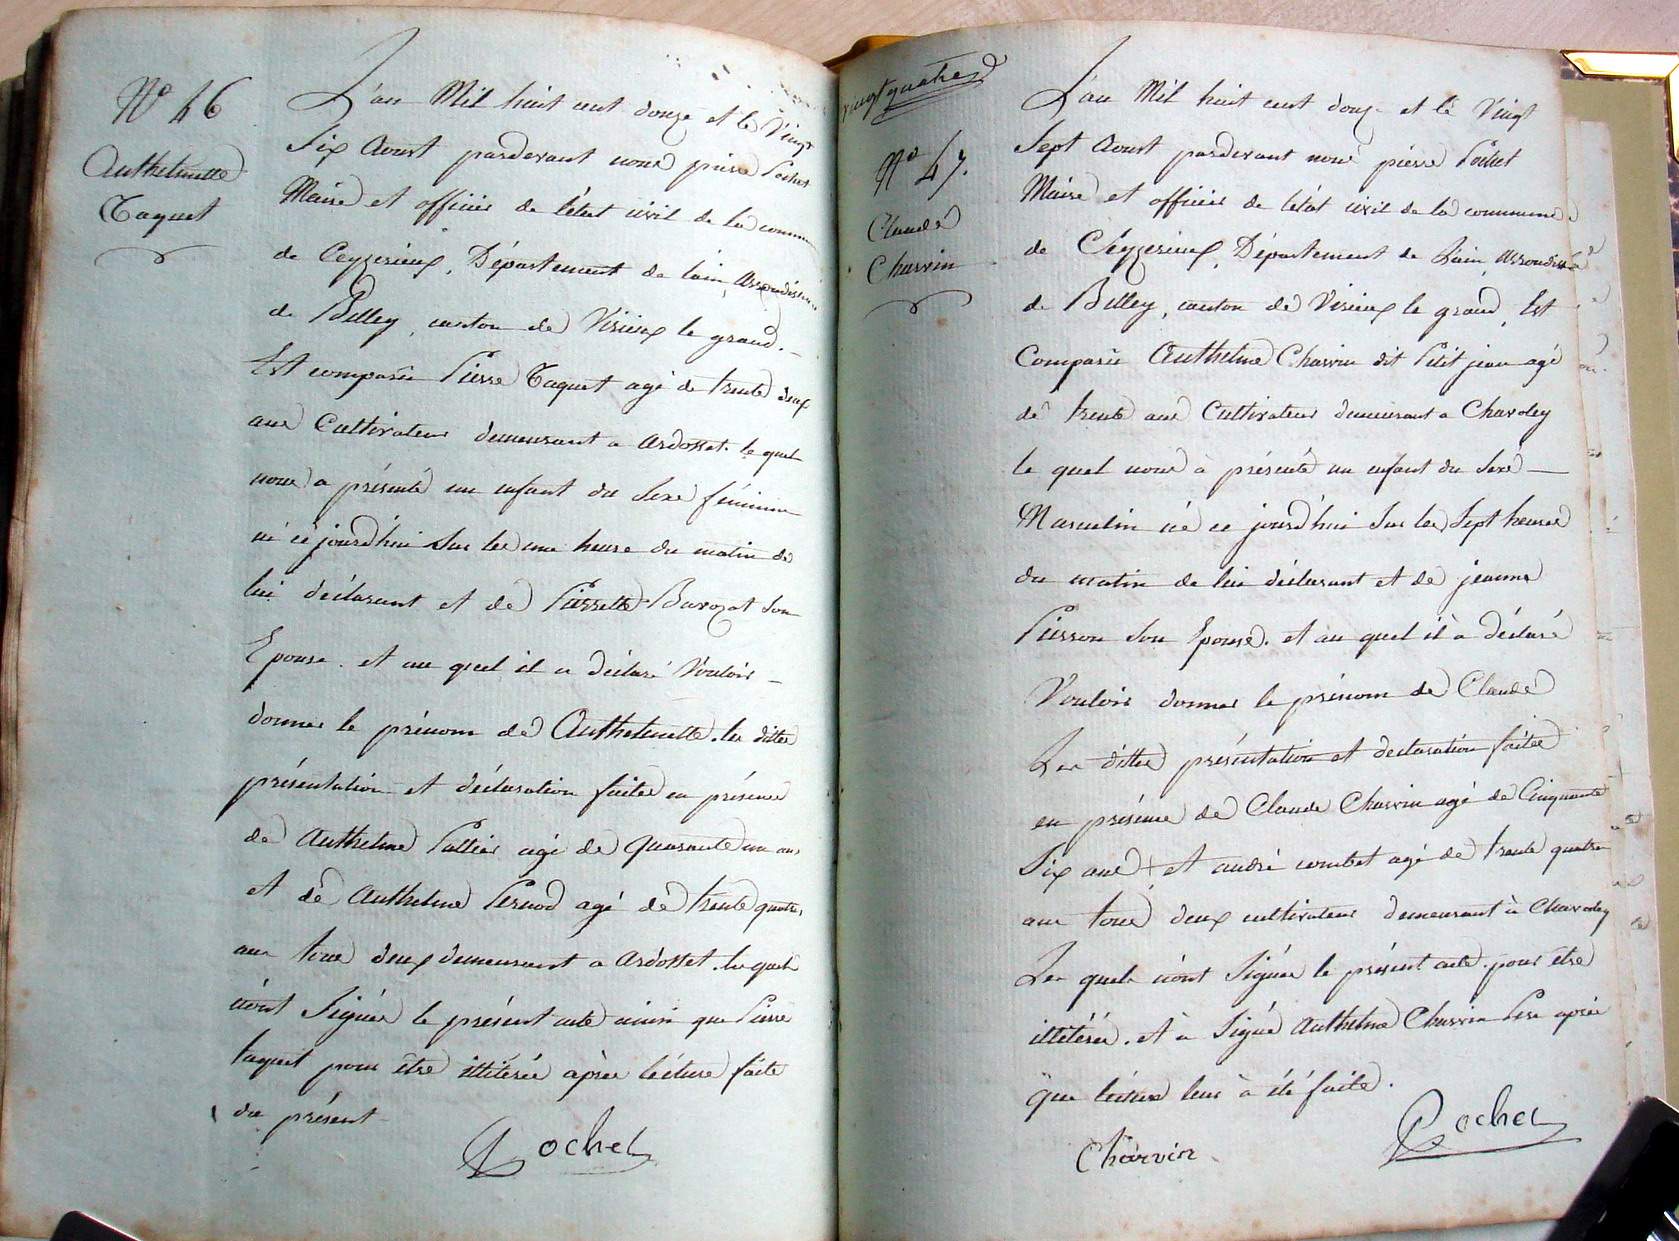 N° 46
Anthelmette
Taquet
L'an Mil huit cent douze et le Vingt
Six Aoust pardevant nous pierre Pochet
Maire et officier de l'état civil de la commune
de Ceyzerieux, Département de lain, Arrondissement
de Belley, canton de Virieux le grand.
Est comparu Pierre Taquet agé de trente deux
ans Cultivateur demeurant a Ardosset. le quel
nous a présenté un enfant du Sexe féminin
né ce jourd'hui Sur les une heure du matin de
lui déclarant et de Pierrette Barozat Son
Epouse. et au quel il a déclaré Vouloir
donner le prénom de Anthelmette. les dittes
présentation et déclaration faites en présence
de Anthelme Pattier agé de quarante un ans
et de Anthelme Pernod agé de trente quatre
ans tous deux demeurant a Ardosset. les quels
n'ont Signés le présent acte ainsi que Pierre
taquet pour être illitérés après lécture faite
du présent
Pochet
vingt quatre
N° 47.
Claude
Charvin
L'an Mil huit cent douz et le Vingt
Sept Aoust pardevant nous pierre Pochet
Maire et officier de l'état civil de la commune
de Ceyzerieux, Département de Lain, Arrondis
de Belley, canton de Virieux le grand, Est
Comparu Anthelme Charvin dit Petit jean agé
de trente ans Cultivateur demeurant a Chavoley
le quel nous à présenté un enfant du Sexe
Masculin né ce jourd'hui Sur les Sept heures
du matin de lui déclarant et de jeanne
Pierson Son Epouse. et au quel il à déclaré
Vouloir donner le prénom de Claude
Les dittes présentation et declaration faites
en présence de Claude Charvin agé de Cinquante
Six ans et andré combet agé de trente quatre
ans tous deux cultivateurs demeurant à Chavoley
Les quels n'ont Signés le présent acte pour être
illitérés. et à Signé Anthelme Charvin Pere après
que lécture leur à été faite.
Charvin
Pochet